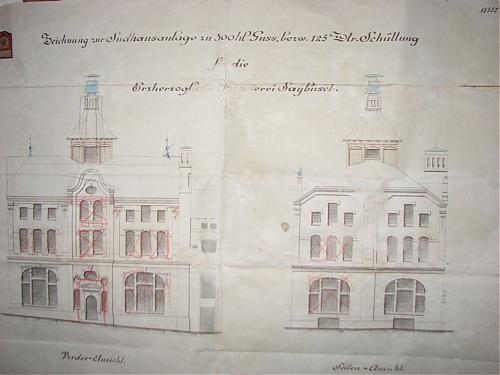 Zeichnung zur Sudhausanlage zu 300 hl. Guss, bezw. 125 Ztr. Schüttung
für die
Erzherzogliche Brauerei Saybusch.
Vorder-Ansicht.
Seiten-Ansicht.